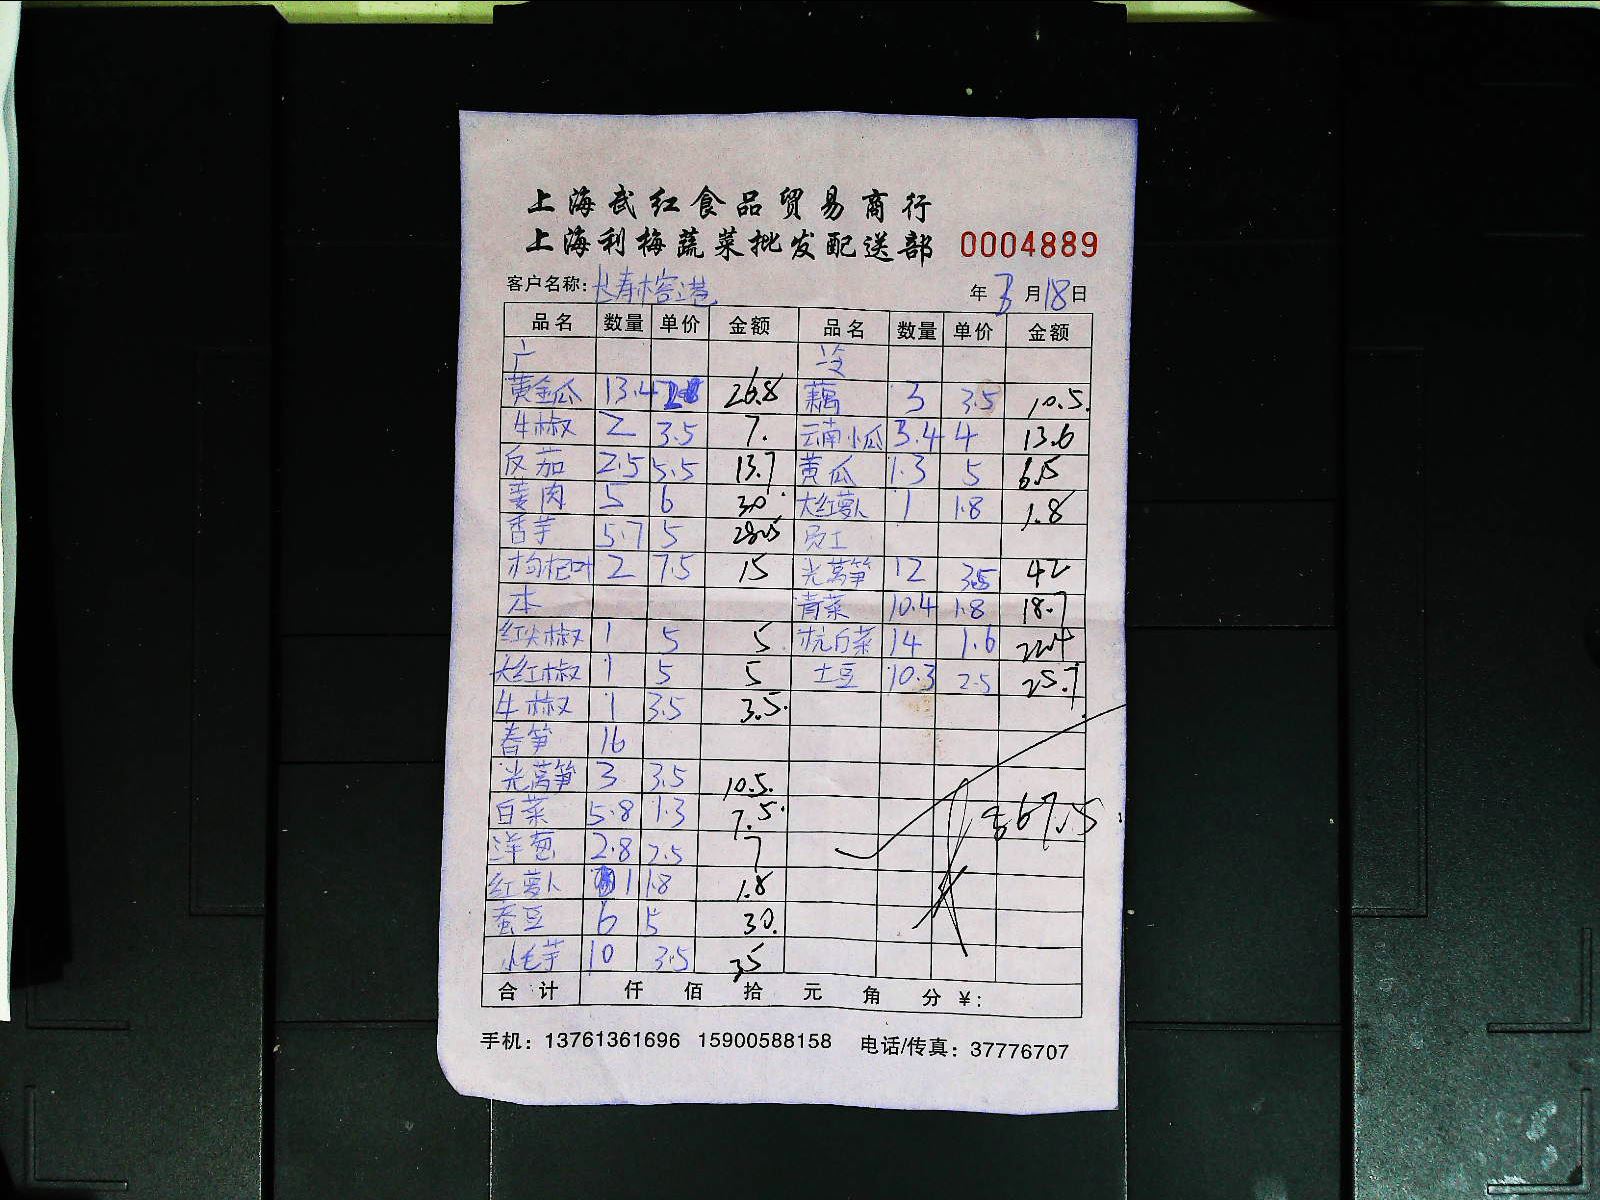 上海武红食品贸易商行
上海利梅蔬菜批发配送部 0004889
客户名称: 长寿榕港 年 3 月 18 日
品名 数量 单价 金额 品名 数量 单价 金额
广 冷
黄金瓜 13.4 2 26.8 藕 3 3.5 10.5
牛椒 2 3.5 7. 云南小瓜 3.4 4 13.6
反茄 2.5 5.5 13.7 黄瓜 1.3 5 6.5
姜肉 5 6 30 大红萝卜 1 1.8 1.8
香芋 5.7 5 28.5 员工
枸杞叶 2 7.5 15 光莴笋 12 3.5 42
本 青菜 10.4 1.8 18.7
红尖椒 1 5 5 杭白菜 14 1.6 22.4
大红椒 1 5 5 土豆 10.3 2.5 25.7
牛椒 1 3.5 3.5
春笋 16
光莴笋 3 3.5 10.5
白菜 5.8 1.3 7.5
洋葱 2.8 2.5 7 67.5
红萝卜 1 1.8 1.8
蚕豆 6 5 30
小毛芋 10 3.5 35
合计 仟 佰 拾 元 角 分 ¥:
手机: 13761361696 15900588158 电话/传真: 37776707